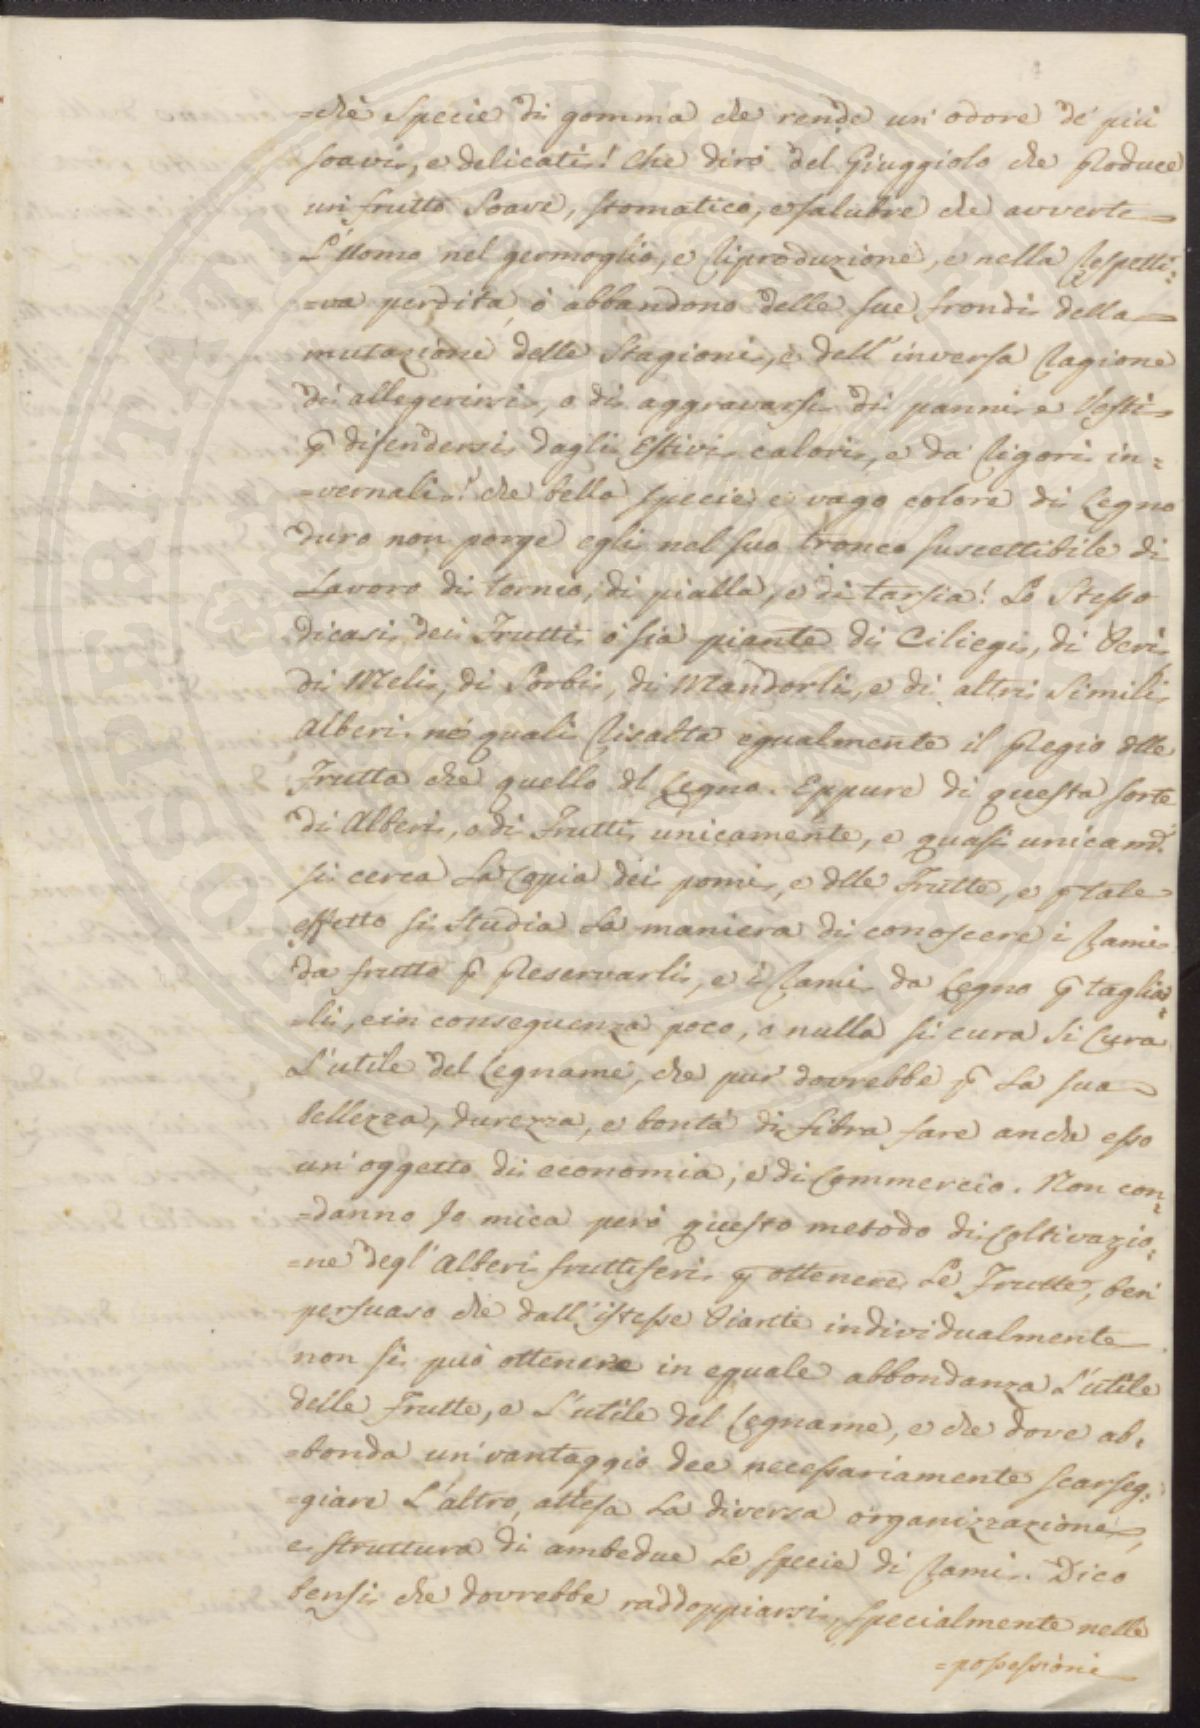 =chè Specie di gomma che rende un' odore de' più
soavi, e delicati! Che dirò del Giuggiolo che Produce
un frutto Soave, stomatico, e salubre che avverte
L'Uomo nel germoglio, e Riproduzione, e nella Respetti=
=va perdita, ò abbandono delle sue frondi della
mutazione delle Stagioni, e dell' inversa Ragione
di allegerirsi, o di aggravarsi di panni e Vesti
p difendersi dagli Estivi calori, e da Rigori in=
=vernali! che bella specie e vago colore di Legno
duro non porge egli nel suo tronco suscettibile di
Lavoro di tornio, di pialla, e di tarsia! Lo Stesso
dicasi dei Frutti ò sia piante di Ciliegi, di Peri
di Meli, di Sorbi, di Mandorli, e di altri Simili
Alberi ne' quali Risalta egualmente il Pregio dlle
Frutta che quello dl Legno. Eppure di questa sorte
di Alberi, o di Frutti unicamente, e quasi unicamte
si cerca La Copia dei pomi, e dlle Frutte, e p tale
effetto si Studia La maniera di conoscere i Rami
da frutto p Preservarli, e i Rami da Legno p taglia=
=li, e in conseguenza poco, o nulla si cura si Cura
L'utile del Legname, che pur dovrebbe p La sua
bellezza, durezza, e bontà di fibra fare anche esso
un' oggetto di economia, e di Commercio. Non con=
=danno Io mica però questo metodo di Coltivazio=
=ne degl' Alberi fruttiferi p ottenere Le Frutte, ben
persuaso che dall' istesse Piante individualmente
non si può ottenere in eguale abbondanza L'utile
delle Frutte, e L'utile del Legname, e che dove ab=
=bonda un' vantaggio dee necessariamente scarseg=
=giare L'altro, attesa La diversa organizzazione,
e struttura di ambedue Le specie di Rami. Dico
bensi che dovrebbe raddoppiarsi, specialmente nelle
=possessioni